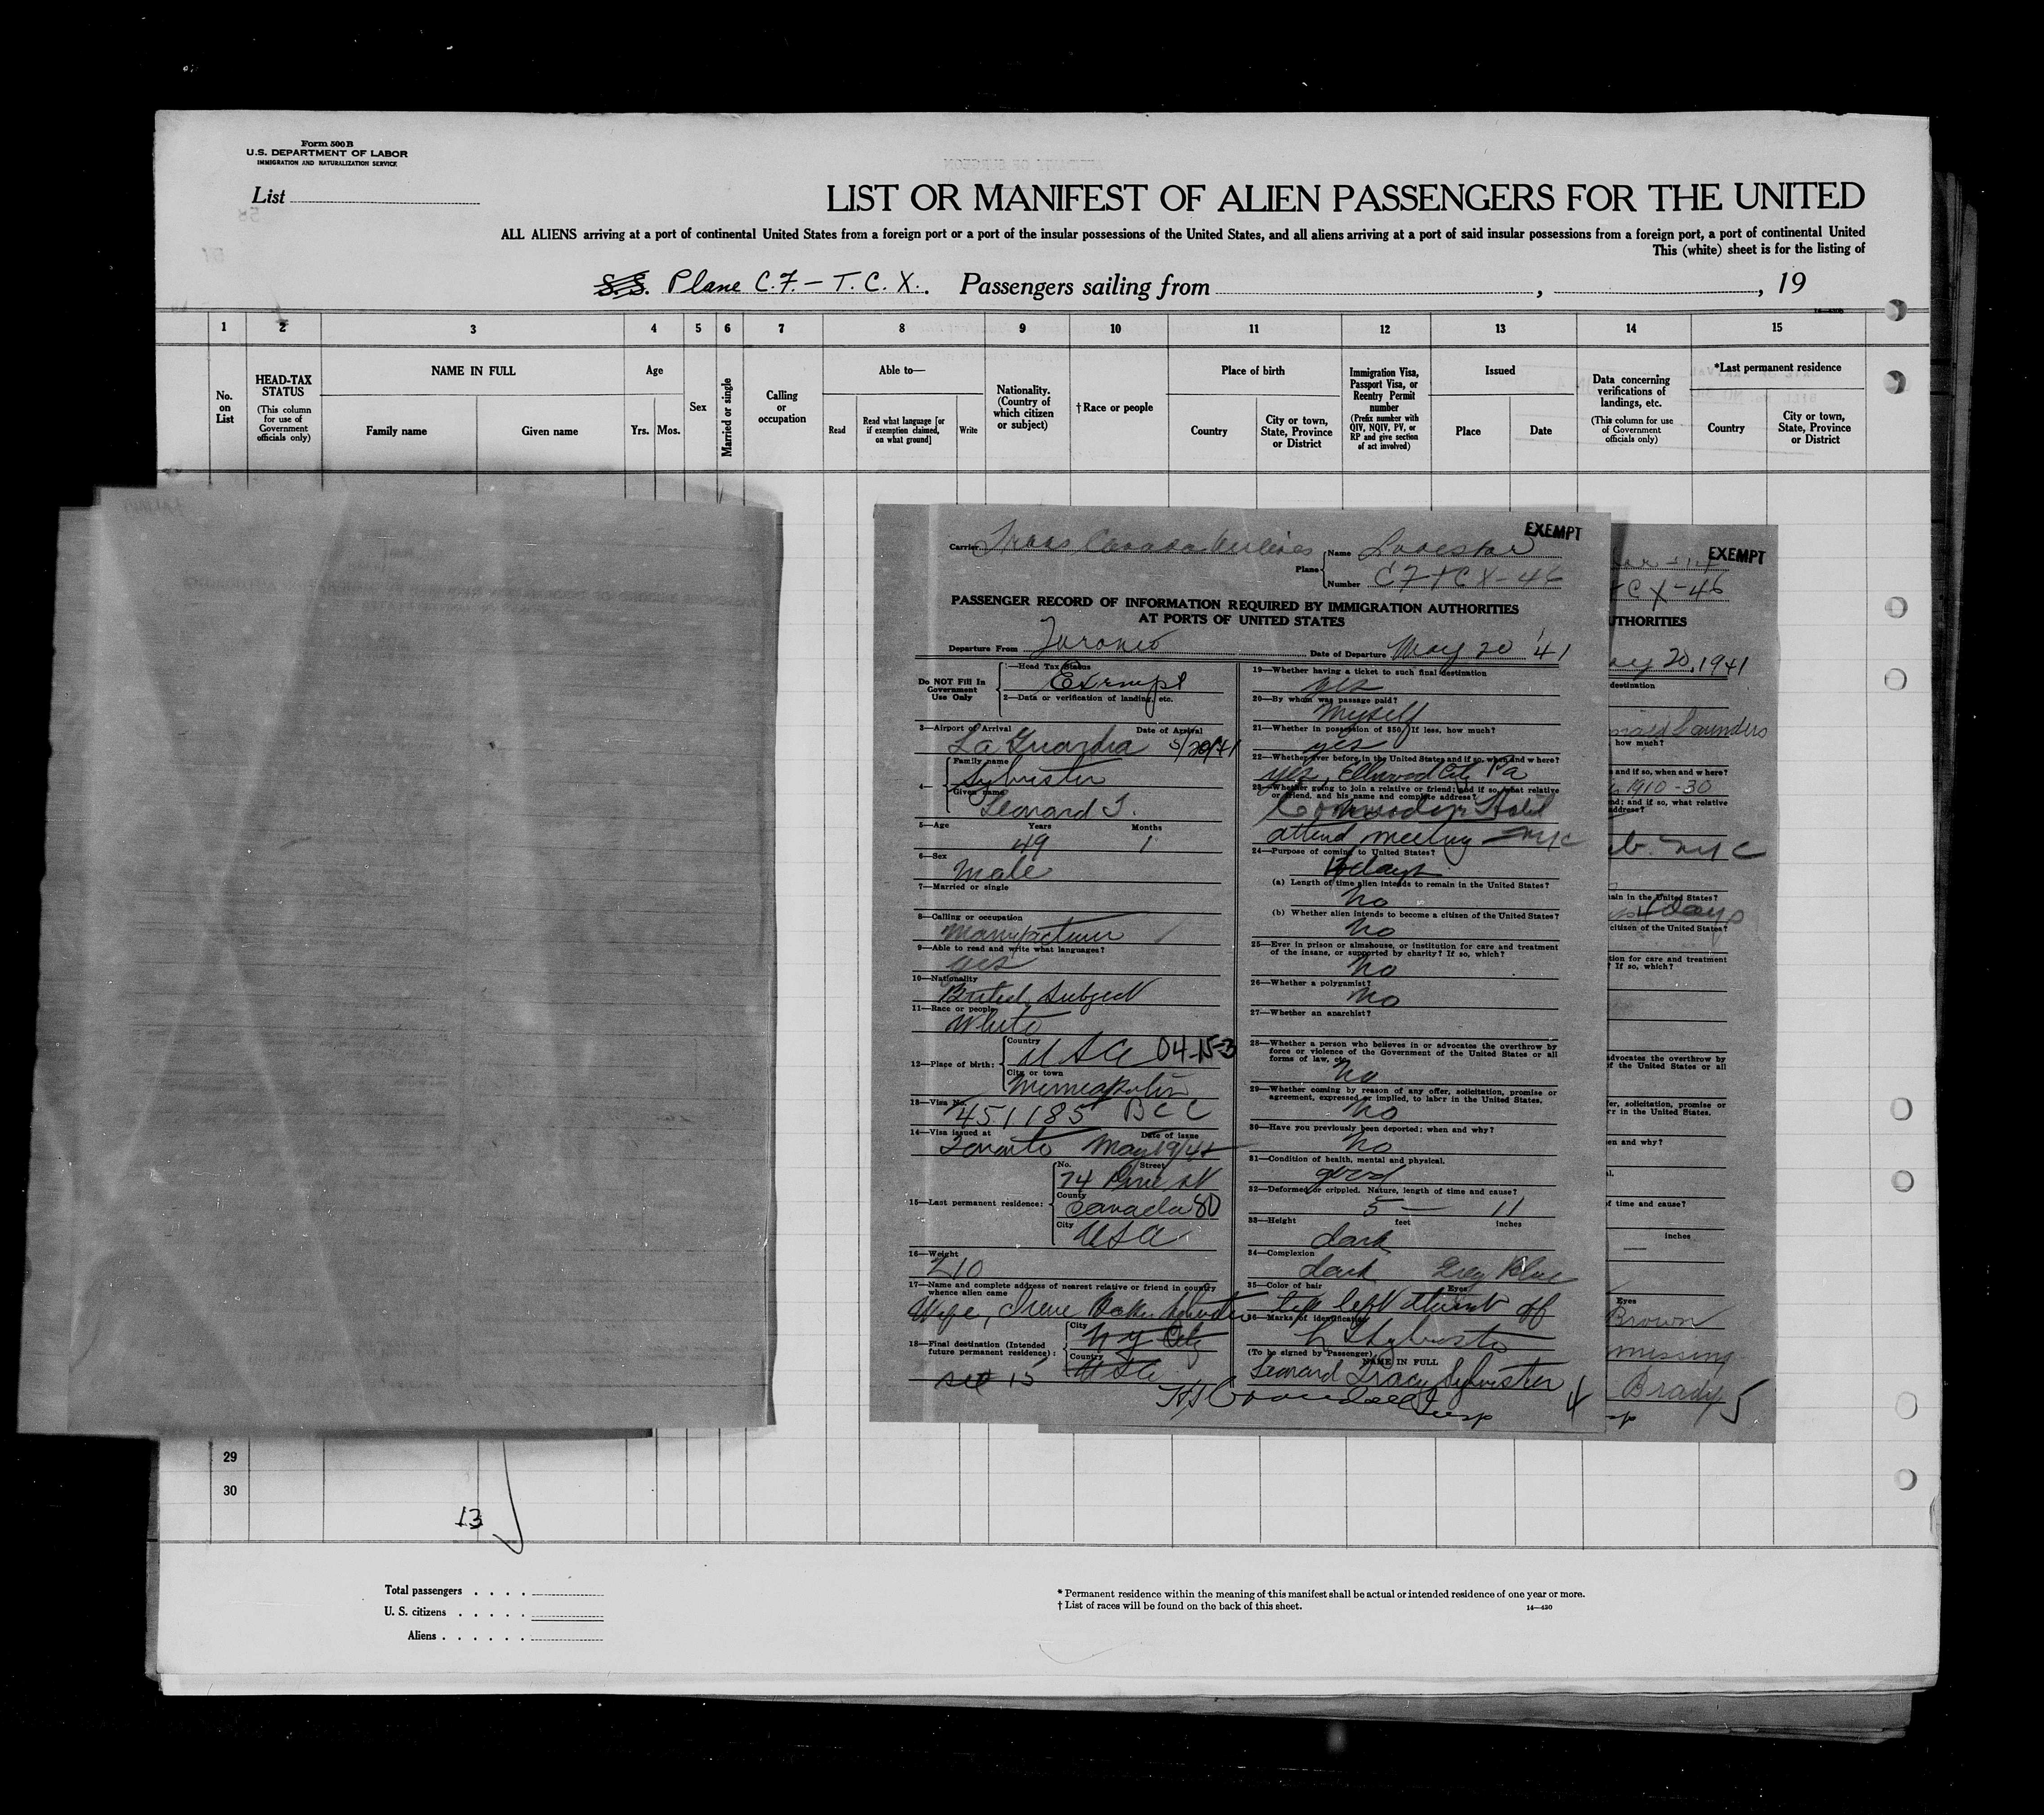 Form 500B
U.S. DEPARTMENT OF LABOR
IMMIGRATION AND NATURALIZATION SERVICE
List
LIST OR MANIFEST OF ALIEN PASSENGERS FOR THE UNITED
ALL ALIENS arriving at a port of continental United States from a foreign port or a port of the insular possessions of the United States, and all aliens arriving at a port of said insular possessions from a foreign port, a port of continental United
This (white) sheet is for the listing of
S.S. Plane C.F.-T.C.X. Passengers sailing from , , 19
1 2 3 4 5 6 7 8 9 10 11 12 13 14 15
No. on List
HEAD-TAX STATUS
(This column for use of Government officials only)
NAME IN FULL
Family name Given name
Age
Yrs. Mos.
Sex
Married or single
Calling or occupation
Able to—
Read
Read what language [or if exemption claimed, on what ground]
Write
Nationality. (Country of which citizen or subject)
† Race or people
Place of birth
Country
City or town, State, Province or District
Immigration Visa, Passport Visa, or Reentry Permit number
(Prefix number with QIV, NQIV, PV, or RP and give section of act involved)
Issued
Place Date
Data concerning verifications of landings, etc.
(This column for use of Government officials only)
*Last permanent residence
Country
City or town, State, Province or District
EXEMPT
Carrier Trans Canada Airlines
Plane Name Lodestar
Number CF TCX-46
PASSENGER RECORD OF INFORMATION REQUIRED BY IMMIGRATION AUTHORITIES
AT PORTS OF UNITED STATES
Departure From Toronto Date of Departure May 20 '41
Do NOT Fill In
Government
Use Only
1—Head Tax Status
Exempt
2—Data or verification of landing, etc.
3—Airport of Arrival Date of Arrival
La Guardia 5/20/41
4— Family name
Sylvester
Given name
Leonard T.
5—Age Years Months
49 1
6—Sex
Male
7—Married or single
8—Calling or occupation
Manufacturer
9—Able to read and write what languages?
yes
10—Nationality
British Subject
11—Race or people
White
12—Place of birth: Country
USA 04-15-3
City or town
Minneapolis
13—Visa No.
451185 BCC
14—Visa issued at Date of issue
Toronto May 19/41
15—Last permanent residence: No. Street
74 St
County
Canada 80
City
USA
16—Weight
210
17—Name and complete address of nearest relative or friend in country
whence alien came
Wife, Irene
18—Final destination (Intended
future permanent residence): City
N Y City
Country
USA
see 15
19—Whether having a ticket to such final destination
yes
20—By whom was passage paid?
Myself
21—Whether in possession of $50. If less, how much?
yes
22—Whether ever before in the United States and if so, when and where?
yes, Ellwood City Pa
23—Whether going to join a relative or friend; and if so, what relative
or friend, and his name and complete address?
Commodore Hotel
attend meeting NYC
24—Purpose of coming to United States?
days
(a) Length of time alien intends to remain in the United States?
No
(b) Whether alien intends to become a citizen of the United States?
No
25—Ever in prison or almshouse, or institution for care and treatment
of the insane, or supported by charity? If so, which?
No
26—Whether a polygamist?
No
27—Whether an anarchist?
28—Whether a person who believes in or advocates the overthrow by
force or violence of the Government of the United States or all
forms of law, etc.
No
29—Whether coming by reason of any offer, solicitation, promise or
agreement, expressed or implied, to labor in the United States.
No
30—Have you previously been deported; when and why?
No
31—Condition of health, mental and physical.
good
32—Deformed or crippled. Nature, length of time and cause?
5 — 11
33—Height feet inches
dark
34—Complexion
dark Grey Blue
35—Color of hair Eyes
tip left thumb off
36—Marks of identification
L Sylvester
(To be signed by Passenger)
NAME IN FULL
Leonard Tracy Sylvester
4
Insp
EXEMPT
CX-46
UTHORITIES
ay 20, 1941
destination
Saunders
how much?
and if so, when and where?
1910-30
nd; and if so, what relative
ddress?
NYC
ain in the United States?
days
citizen of the United States?
tion for care and treatment
? If so, which?
advocates the overthrow by
of the United States or all
fer, solicitation, promise or
or in the United States.
en and why?
al.
f time and cause?
inches
Eyes
Brown
missing
Brady 5
sp
29
30
13
Total passengers
U. S. citizens
Aliens
* Permanent residence within the meaning of this manifest shall be actual or intended residence of one year or more.
† List of races will be found on the back of this sheet.
14—430